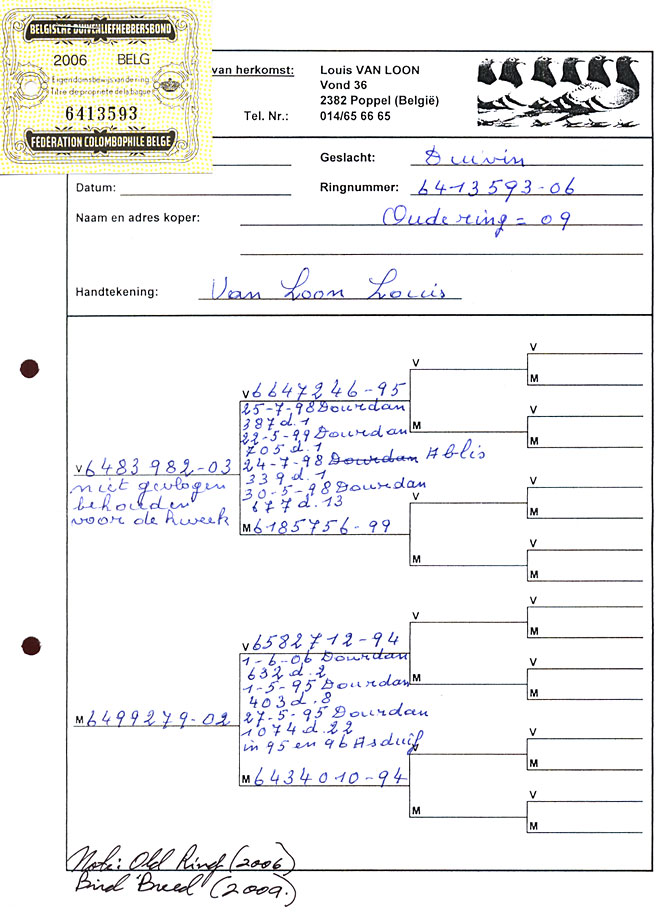 BELGISCHE DUIVENLIEFHEBBERSBOND
2006 BELG
Eigendomsbewijs van de ring
Titre de propriete de la bague
6413593
FÉDÉRATION COLOMBOPHILE BELGE
van herkomst: Louis VAN LOON
Vond 36
2382 Poppel (België)
Tel. Nr.: 014/65 66 65
Geslacht: Duivin
Datum: Ringnummer: 6413593-06
Naam en adres koper: Oude ring = 09
Handtekening: Van Loon Louis
V 6483982-03
niet gevlogen
behouden
voor de kweek
V 6647246-95
25-7-98 Dourdan
387 d. 1
22-5-99 Dourdan
705 d. 1
24-7-98 Dourdan Ablis
339 d. 1
30-5-98 Dourdan
677 d. 13
M 6185756-99
V
V
M
M
V
M
M
V
V
M
M
V
M
M 6499279-02
V 6582712-94
1-6-06 Dourdan
632 d. 2
1-5-95 Dourdan
403 d. 8
27-5-95 Dourdan
1074 d. 22
in 95 en 96 Asduif
M 6434010-94
V
V
M
M
V
M
V
V
M
M
V
M
Note: Old Ring (2006)
Bird Breed (2009.)